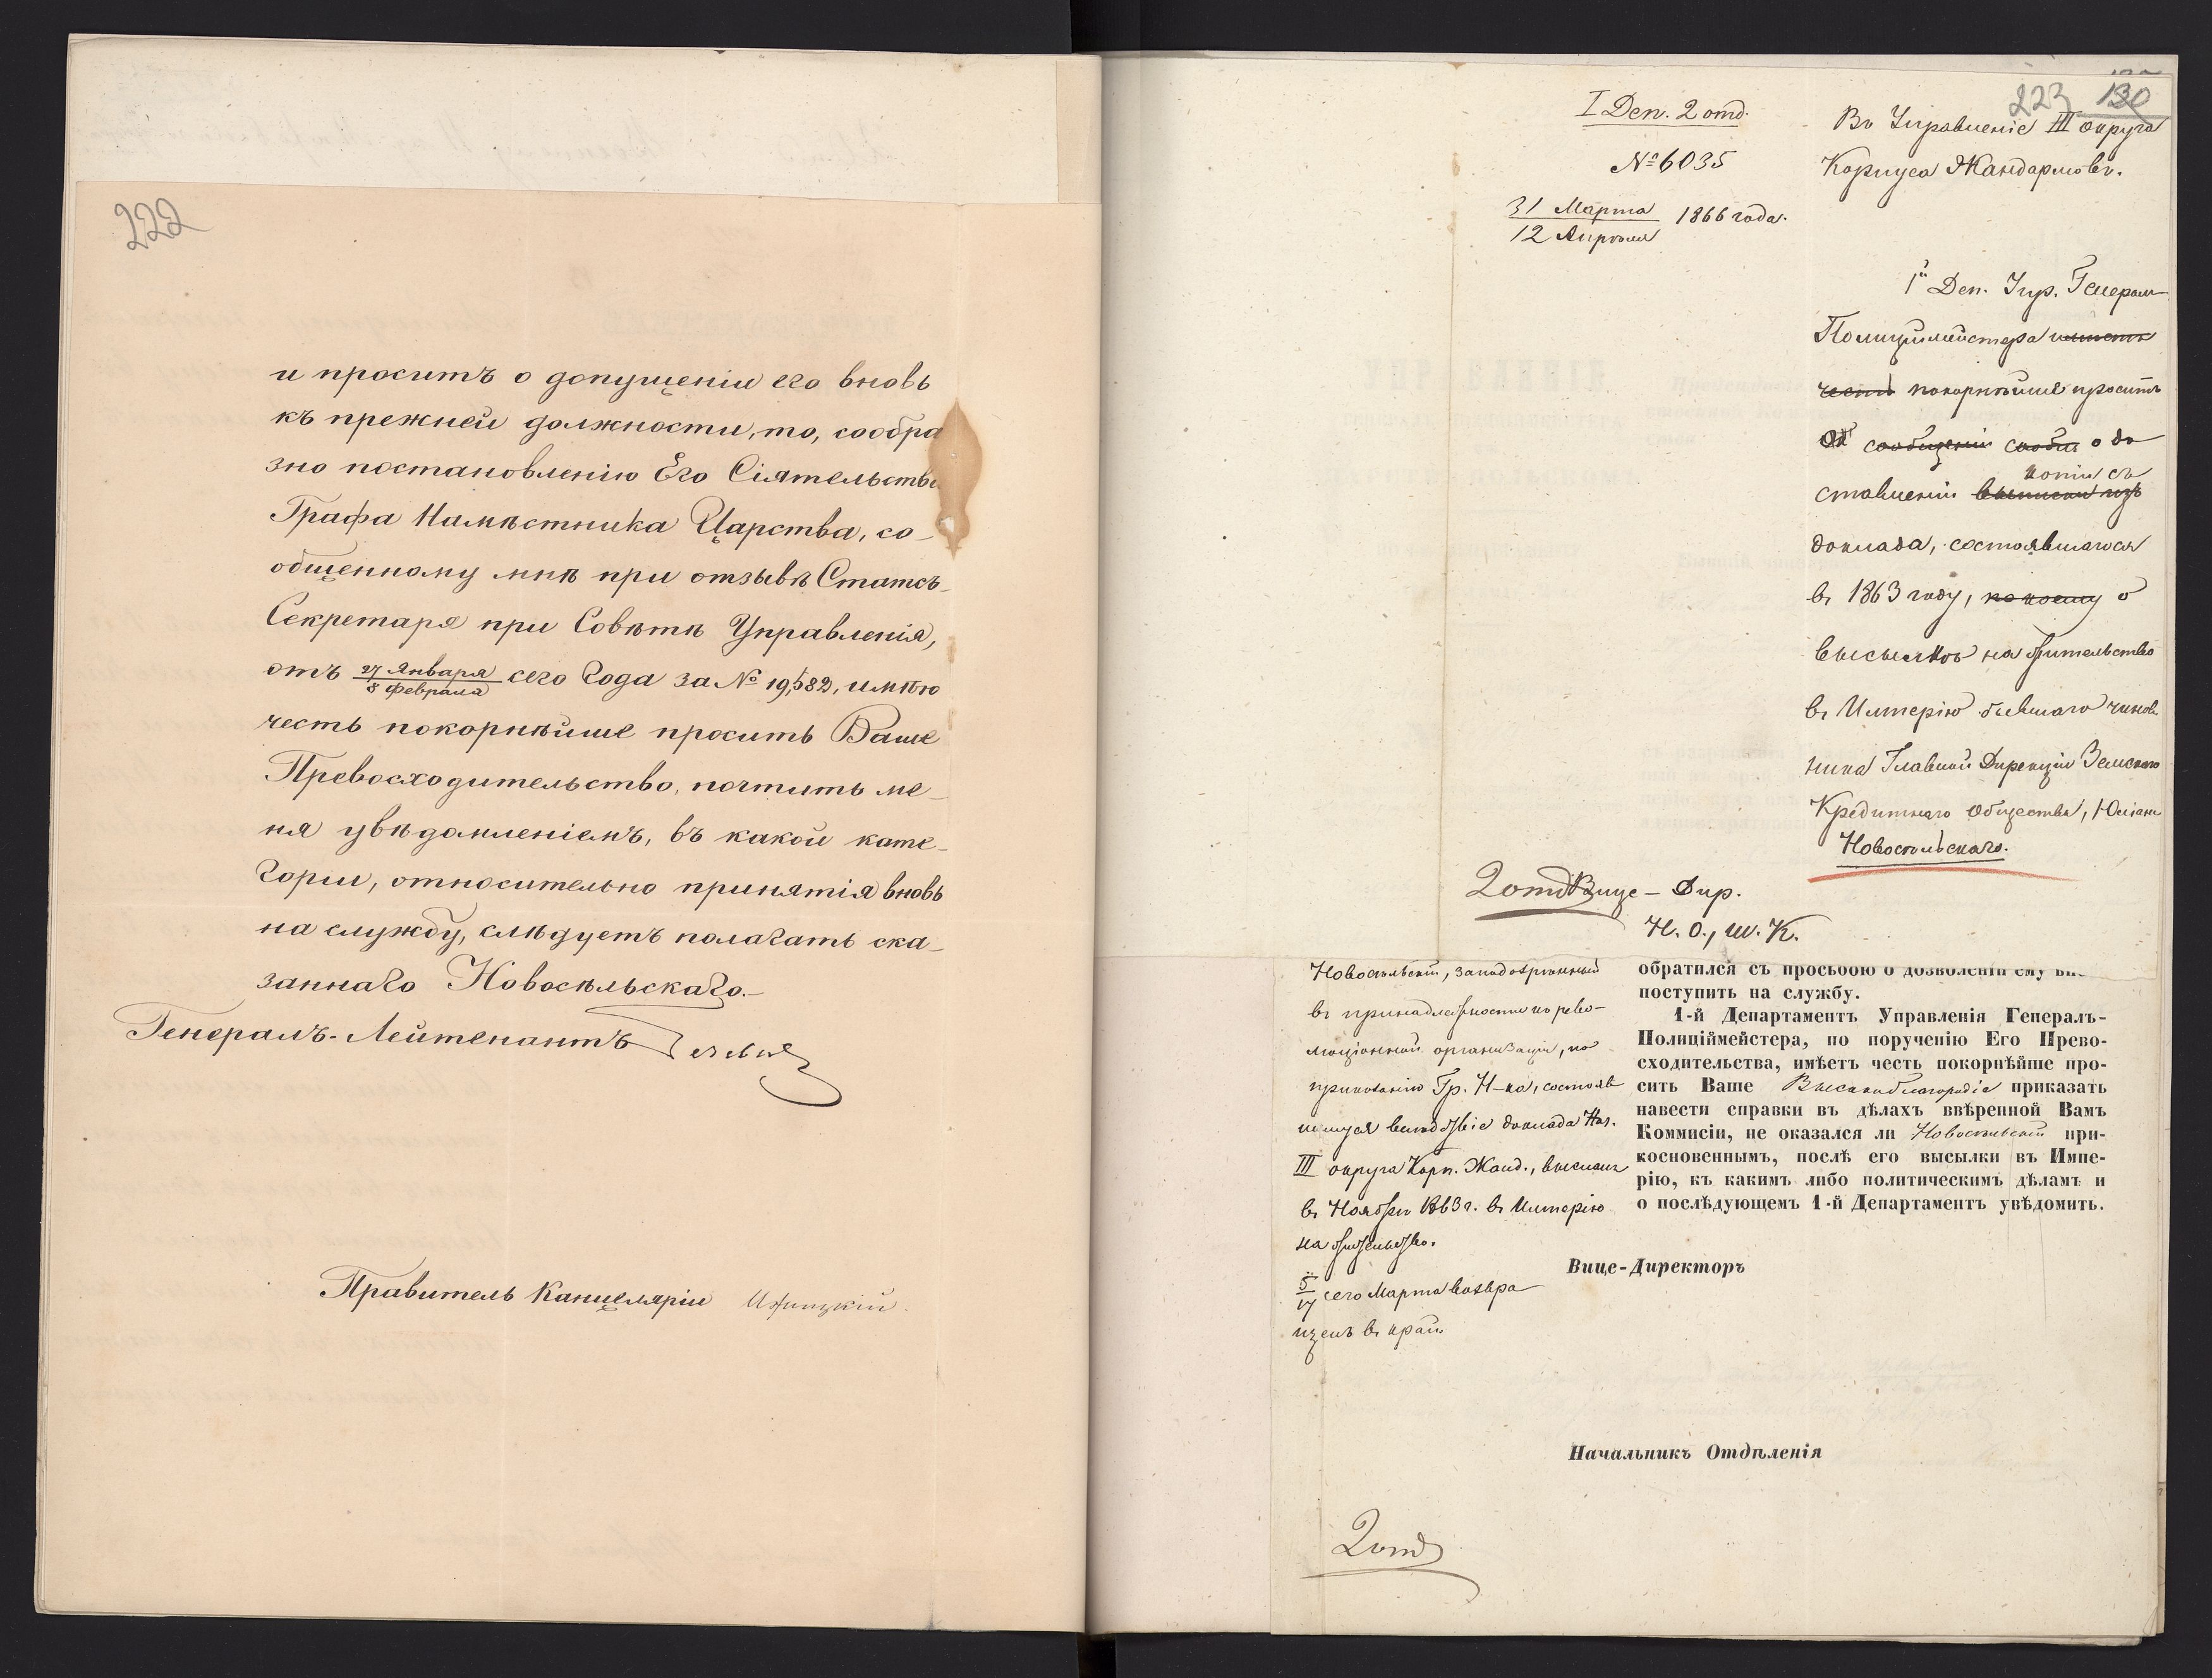 222
и проситъ о допущеніи его вновь
къ прежней должности, то, сообра
зно постановленію Его Сіятельства
Графа Намѣстника Царства, со-
общенному мнѣ при отзывѣ Статсъ-
Секретаря при Совѣтѣ Управленія,
отъ 27 Января / 8 Февраля сего Года за № 19,582, имѣю
честь покорнѣйше просить Ваше
Превосходительство, почтить ме-
ня увѣдомленіемъ, въ какой кате-
горіи, относительно принятія вновь
на службу, слѣдуетъ полагать ска-
заннаго Новосѣльскаго.—
Генералъ-Лейтенантъ
Правитель Канцеляріи
223 130
I Деп. 2 отд.
№ 6035
31 Марта / 12 Апрѣля 1866 года.
Въ Управленіе III округа
Корпуса Жандармовъ.
1й Деп. Упр. Генерал-
Полицiймейстера имѣетъ
честь покорнѣйше проситъ
сообщеніи сообщ о до
копіи съ
ставленіи выписки изъ
доклада, состоявшагося
въ 1863 году, по коему о
высылкѣ на жительство
въ Имперію бывшаго чинов
ника Главной Дирекціи Земскаго
Кредитнаго Общества, Юліана
Новосѣльскаго.
2 отд Вице-Дир.
Н. О., Ш. К.
Новосѣльскій, заподозрѣнный
въ принадлежности къ рево-
люціонной организаціи, по
приказанію Гр. Н-ка, состояв
шемуся вслѣдствіе доклада Нач.
III округа Корп. Жанд., высланъ
въ Ноябрѣ 1863 г. въ Имперію
на жительство.
5/17 сего Марта возвра
щенъ въ край
обратился съ просьбою о дозволеніи ему вн
поступить на службу.
1-й Департаментъ Управленія Генералъ-
Полиціймейстера, по порученію Его Прево-
сходительства, имѣетъ честь покорнѣйше про-
сить Ваше Высокоблагородіе приказать
навести справки въ дѣлахъ ввѣренной Вамъ
Коммисіи, не оказался ли Новосѣльскій при-
косновеннымъ, послѣ его высылки въ Импе-
рію, къ какимъ либо политическимъ дѣламъ и
о послѣдующемъ 1-й Департаментъ увѣдомить.
Вице-Директоръ
Начальникъ Отдѣленія
2 отд